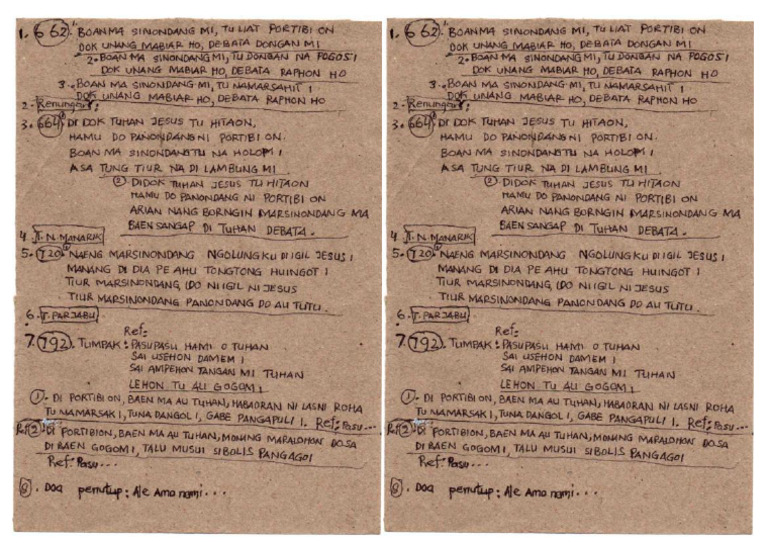 1. 662. BOANMA SINONDANG MI, TU LIAT PORTIBI ON
DOK UNANG MABIAR HO, DEBATA DONGAN MI
2. BOAN MA SINONDANG MI, TU DONGAN NA POGOS I
DOK UNANG MABIAR HO, DEBATA RAPHON HO
3. BOAN MA SINONDANG MI, TU NAMARSAHIT I
DOK UNANG MABIAR HO, DEBATA RAPHON HO
2. Renungan:
3. 664 DI DOK TUHAN JESUS TU HITAON,
HAMU DO PANONDANG NI PORTIBI ON.
BOAN MA SINONDANG TU NA HOLOM I
ASA TUNG TIUR NA DI LAMBUNG MI
② DIDOK TUHAN JESUS TU HITAON
HAMU DO PANONDANG NI PORTIBI ON
ARIAN NANG BORNGIN MARSINONDANG MA
BAEN SANGAP DI TUHAN DEBATA.
4. N. MANARIK
5. 720 NAENG MARSINONDANG NGOLUNGKU DI IGIL JESUS I
MANANG DI DIA PE AHU TONGTONG HUINGOT I
TIUR MARSINONDANG, IDO NI IGIL NI JESUS
TIUR MARSINONDANG PANONDANG DO AU TUTU.
6. T. PARJABU
Ref:
7. 792. TUMPAK: PASUPASU HAMI O TUHAN
SAI USEHON DAMEM I
SAI AMPEHON TANGAN MI TUHAN
LEHON TU AU GOGOM I
①. DI PORTIBI ON, BAEN MA AU TUHAN, HABAORAN NI LASNI ROHA
TU NAMARSAK I, TUNA DANGOL I, GABE PANGAPULI I. Ref: Pasu...
② DI PORTIBION, BAEN MA AU TUHAN, MONANG MARALOHON DOSA
DI BAEN GOGOM I, TALU MUSUI SIBOLIS PANGAGOI
Ref: Pasu...
8. Doa penutup: Ale Amanami...
1. 662. BOANMA SINONDANG MI, TU LIAT PORTIBI ON
DOK UNANG MABIAR HO, DEBATA DONGAN MI
2. BOAN MA SINONDANG MI, TU DONGAN NA POGOS I
DOK UNANG MABIAR HO, DEBATA RAPHON HO
3. BOAN MA SINONDANG MI, TU NAMARSAHIT I
DOK UNANG MABIAR HO, DEBATA RAPHON HO
2. Renungan:
3. 664 DI DOK TUHAN JESUS TU HITAON,
HAMU DO PANONDANG NI PORTIBI ON.
BOAN MA SINONDANG TU NA HOLOM I
ASA TUNG TIUR NA DI LAMBUNG MI
② DIDOK TUHAN JESUS TU HITAON
HAMU DO PANONDANG NI PORTIBI ON
ARIAN NANG BORNGIN MARSINONDANG MA
BAEN SANGAP DI TUHAN DEBATA.
4. N. MANARIK
5. 720 NAENG MARSINONDANG NGOLUNGKU DI IGIL JESUS I
MANANG DI DIA PE AHU TONGTONG HUINGOT I
TIUR MARSINONDANG, IDO NI IGIL NI JESUS
TIUR MARSINONDANG PANONDANG DO AU TUTU.
6. T. PARJABU
Ref:
7. 792. TUMPAK: PASUPASU HAMI O TUHAN
SAI USEHON DAMEM I
SAI AMPEHON TANGAN MI TUHAN
LEHON TU AU GOGOM I
①. DI PORTIBI ON, BAEN MA AU TUHAN, HABAORAN NI LASNI ROHA
TU NAMARSAK I, TUNA DANGOL I, GABE PANGAPULI I. Ref: Pasu...
② DI PORTIBION, BAEN MA AU TUHAN, MONANG MARALOHON DOSA
DI BAEN GOGOM I, TALU MUSUI SIBOLIS PANGAGOI
Ref: Pasu...
8. Doa penutup: Ale Amanami...